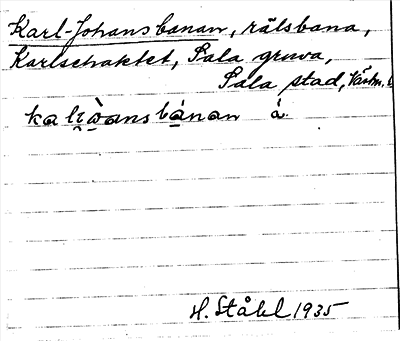 Karl-Johansbanan, rälsbana,
Karlschaktet, Sala gruva,
Sala stad, Västm.
å
H. Ståhl 1935